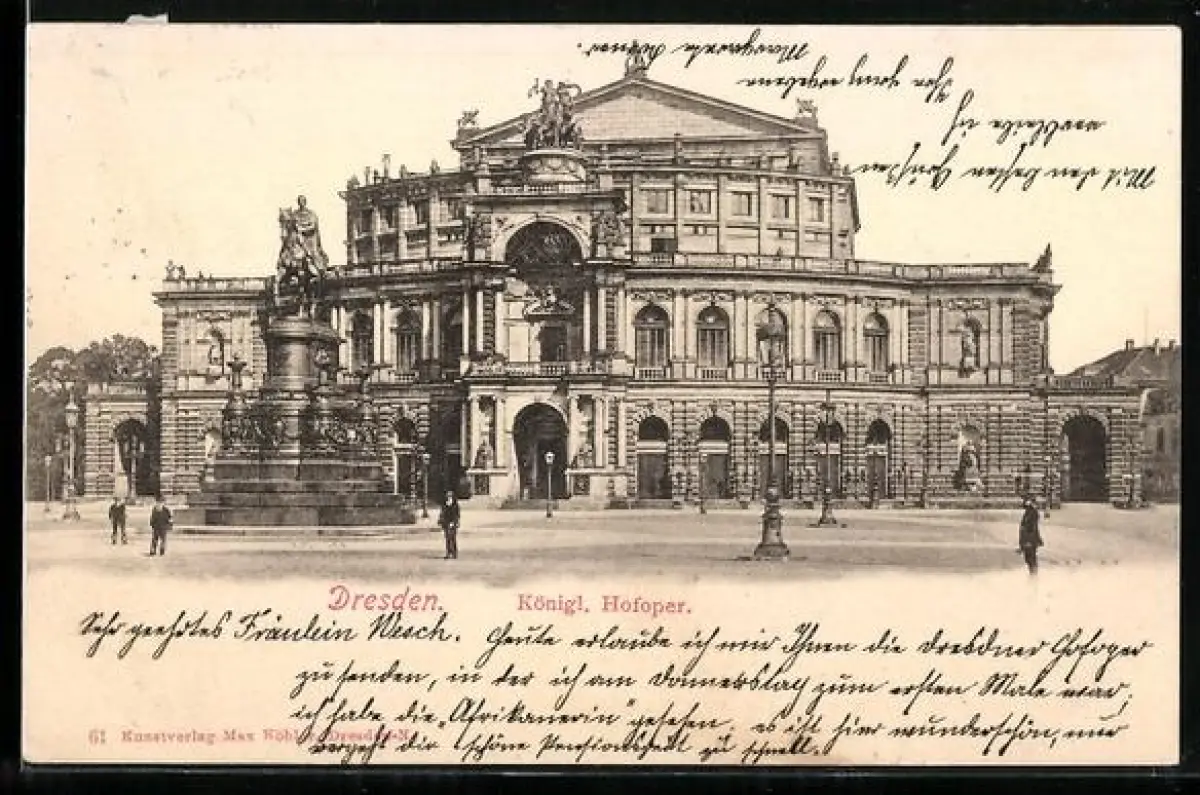 Dresden. Königl. Hofoper.
Sehr geehrtes Fräulein Wesch. Heute erlaube ich mir Ihnen die Dresdner Hofoper
zu senden, in der ich am Donnerstag zum ersten Male war,
ich habe die „Afrikanerin" gesehen, es ist hier wunderschön, nur
vergeht die schöne Pensionszeit zu schnell.
61 Kunstverlag Max Köhler, Dresden-N.
Mit den besten Grüßen
verbleibe ich
Ihre ganz ergebene
Margarete